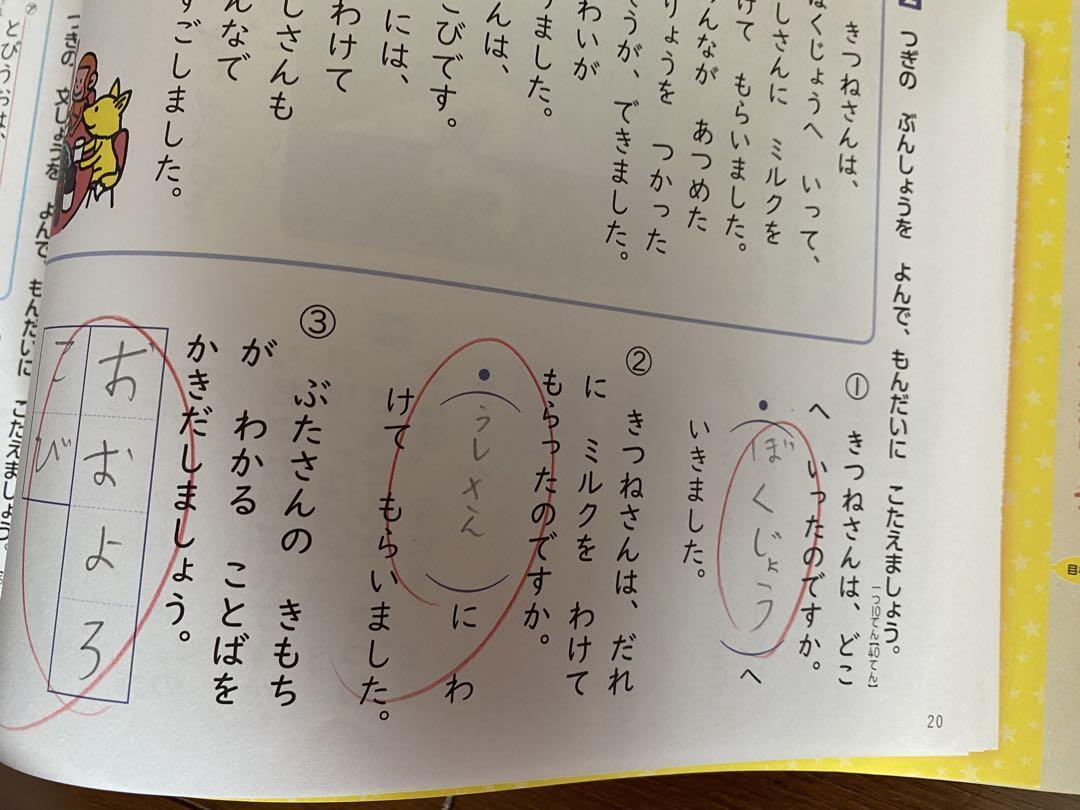 つぎの ぶんしょうを よんで、もんだいに こたえましょう。
一つ10てん【40てん】
きつねさんは、
ぼくじょうへ いって、
しさんに ミルクを
けて もらいました。
んなが あつめた
りょうを つかった
うが、できました。
わいが
りました。
んは、
こびです。
には、
わけて
しさんも
んなで
すごしました。
① きつねさんは、どこ
へ いったのですか。
・(ぼくじょう)へ
いきました。
② きつねさんは、だれ
に ミルクを わけて
もらったのですか。
・(うしさん)にわ
けて もらいました。
③ ぶたさんの きもち
が わかる ことばを
かきだしましょう。
おおよろ
こび
20
つぎの 文しょうを よんで、もんだいに こたえましょう。
とびうおは、